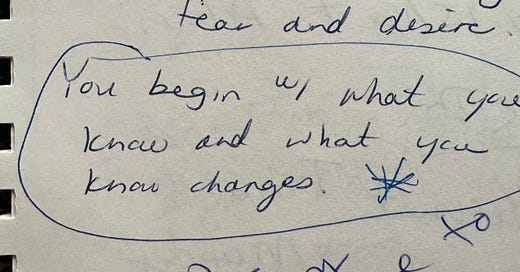 fear and desire.
You begin w/ what you
know and what you
know changes. *
xo